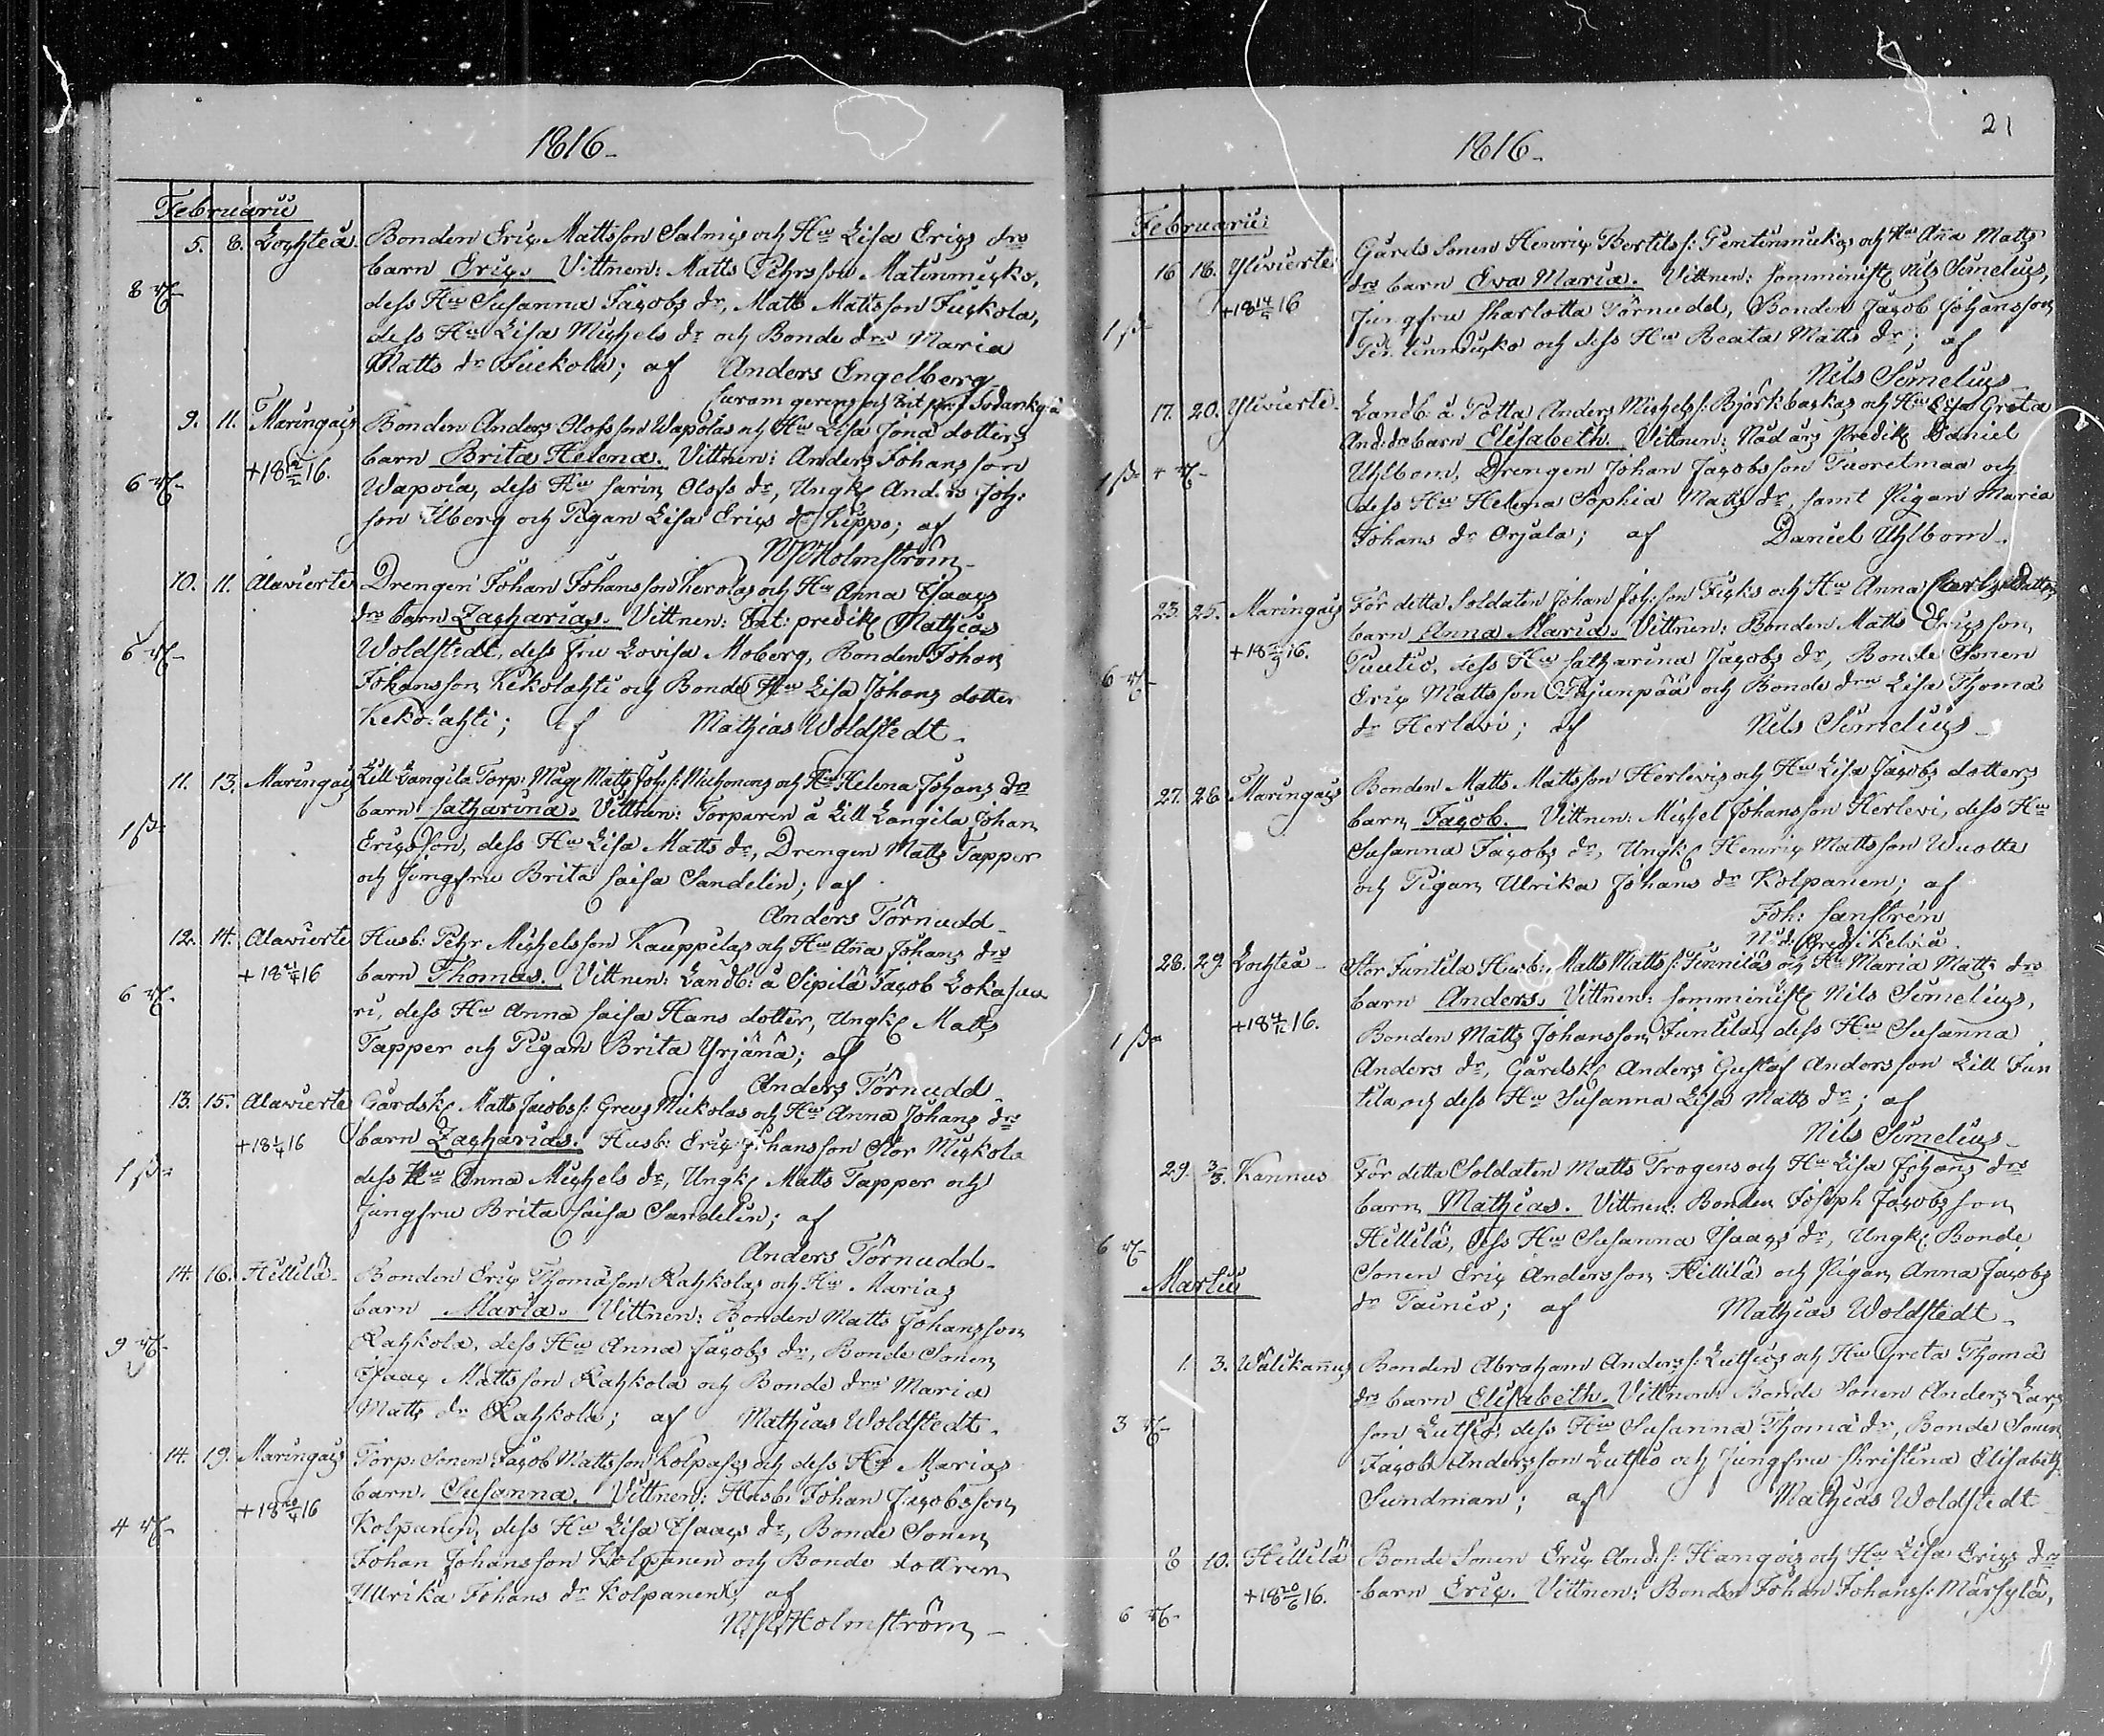 1816.
Februarii
5. 8. Lochteå. Bonden Eric Mattsson Salmis och Hu Lisa Erics drs
barn Eric. Vittnen: Matts Pehrsson Matinmicko,
8 rf dess Hu Susanna Jacobs dr, Matts Mattsson Juckola,
dess Hu Lisa Michels dr och Bonde drn Maria
Matts dr Juckola; af Anders Engelberg
9. 11. Maringais Bonden Anders Olofsson Wapolas och Hu Lisa Jonæ dotters
+18 16. barn Brita Helena. Vittnen: Anders Johansson
6 rf Wapoia, dess Hu Carin Olofs dr, Ungk Anders Joh:
son Åberg och Pigan Lisa Erics dr Kippo; af
Holmström
10. 11. Alavierte Drengen Johan Johansson Kerolas och Hu Anna Isaacs
drs barn Zacharias. Vittnen: Vict: predik Mathias
6 rf Woldstedt, dess fru Lovisa Moberg, Bonden Johan
Johansson Kekolahti och Bonde Hu Lisa Johans dotter
Kekolahti; af Mathias Woldstedt
11. 13. Maringais Lill Långila Torp: Måg Matts Joh:s: Niskonens och Hu Helena Johans drs
barn Catharina. Vittnen: Torparen å Lill Långila Johan
Ericsson, dess Hu Lisa Matts dr, Drengen Matts Tapper
och Jungfru Brita Caisa Sandelin; af
Anders Törnudd
12. 14. Alavierte Husb: Pehr Michelsson Kauppilas och Hu Anna Johans drs
+18 16 barn Thomas. Vittnen: Landb: å Sipilä Jacob Lokasaa
6 rf ri, dess Hu Anna Caisa Hans dotter, Ungk Matts
Tapper och Pigan Brita Yrjänä; af
Anders Törnudd
13. 15. Alavierte Gårdsk Matts Jacobs s: Greus Mickolas och Hu Anna Johans drs
+18 16 barn Zacharias. Husb: Eric Johansson Stor Mickola
dess Hu Anna Michels dr, Ungk Matts Tapper och
Jungfru Brita Caisa Sandelin; af
Anders Törnudd
14. 16. Hillilä Bonden Eric Thomasson Rahkolas och Hu Marias
barn Maria. Vittnen: Bonden Matts Johansson
9 rf Rahkola, dess Hu Anna Jacobs dr, Bonde Sonen
Isaac Mattsson Rahkola och Bonde drn Maria
Matts dr Rahkola; af Mathias Woldstedt
14. 19. Maringais Torp: Sonen Jacob Mattsson Kolpases och dess Hu Marias
+18 16 barn. Susanna. Vittnen: Husb: Johan Jacobsson
4 rf Kolpanen, dess Hu Lisa Isaacs dr, Bonde Sonen
Johan Johansson Kolpanen och Bonde dottren
Ullrika Johans dr Kolpanen; af
Holmström
21
1816.
Februarii
16 18. Ylivierte Gårds Sonen Henric Bertils s: Pentinmickas och Hu Anna Matts
+18 16 drs barn Eva Maria. Vittnen: Comminist Nils Simelius,
Jungfru Charlotta Törnudd, Bonden Jacob Johansson
Pentinmicko och dess Hu Beata Matts dr; af
Nils Simelius
17. 20. Ylivierte Landb: å Potta Anders Michels s: Björkbackas och Hu Lisa Greta
And: drs barn Elisabeth. Vittnen: Nådårs Predik Daniel
Uhlbom, Drengen Johan Jacobsson Tuoretmaa och
dess Hu Helena Sophia Matts dr, samt Pigan Maria
Johans dr Orjala; af Daniel Uhlbom
23. 25. Maringais För detta Soldaten Johan Joh:son Ficks och Hu Anna Carls Dotters
+18 16. barn Anna Maria. Vittnen: Bonden Matts Ericsson
6 rf dess Hu Catharina Jacobs dr, Bonde Sonen
Eric Mattsson Pajunpää och Bonde drn Lisa Thomæ
dr Herlevi; af Nils Simelius
27. 28 Maringais Bonden Matts Mattsson Herlevis och Hu Lisa Jacobs dotters
barn Jacob. Vittnen: Michel Johansson Herlevi, dess Hu
Susanna Jacobs dr, Ungk Henric Mattsson Wuolle
och Pigan Ulrika Johans dr Kolpanen; af
Joh: Canstrén
28. 29 Lochteå Stor Juntila Husb: Matts Matts s: Finniläs och Hu Maria Matts drs
barn Anders. Vittnen: Comminist Nils Simelius,
+18 16. Bonden Matts Johansson Juntila, dess Hu Susanna
Anders dr, Gårdsk Anders Gustaf Andersson Lill Jun
tila och dess Hu Susanna Lisa Matts dr; af
Nils Simelius
29. 3/3. Kannus För detta Soldaten Matts Trogens och Hu Lisa Johans drs
barn Mathias. Vittnen: Bonden Joseph Jacobsson
6 rf Hillilä, dess Hu Susanna Isaacs dr, Ungk Bonde
Sonen Eric Andersson Hillilä och Pigan Anna Jacobs
dr Tainio; af Mathias Woldstedt
Martii
1. 3. Wälikannus Bonden Abraham Anders s: Luthios och Hu Greta Thomæ
drs barn Elisabeth. Vittnen: Bonde Sonen Anders Lars
3 rf son Luthio, dess Hu Susanna Thomæ dr, Bonde Sonen
Jacob Andersson Luthio och Jungfru Christina Elisabeth
Sundman; af Mathias Woldstedt
8 10. Hillilä Bonde Sonen Eric And:s: Hangois och Hu Lisa Erics drs
+18 20/6 16. barn Eric. Vittnen: Bonden Johan Johans s: Märsylä,
6 rf